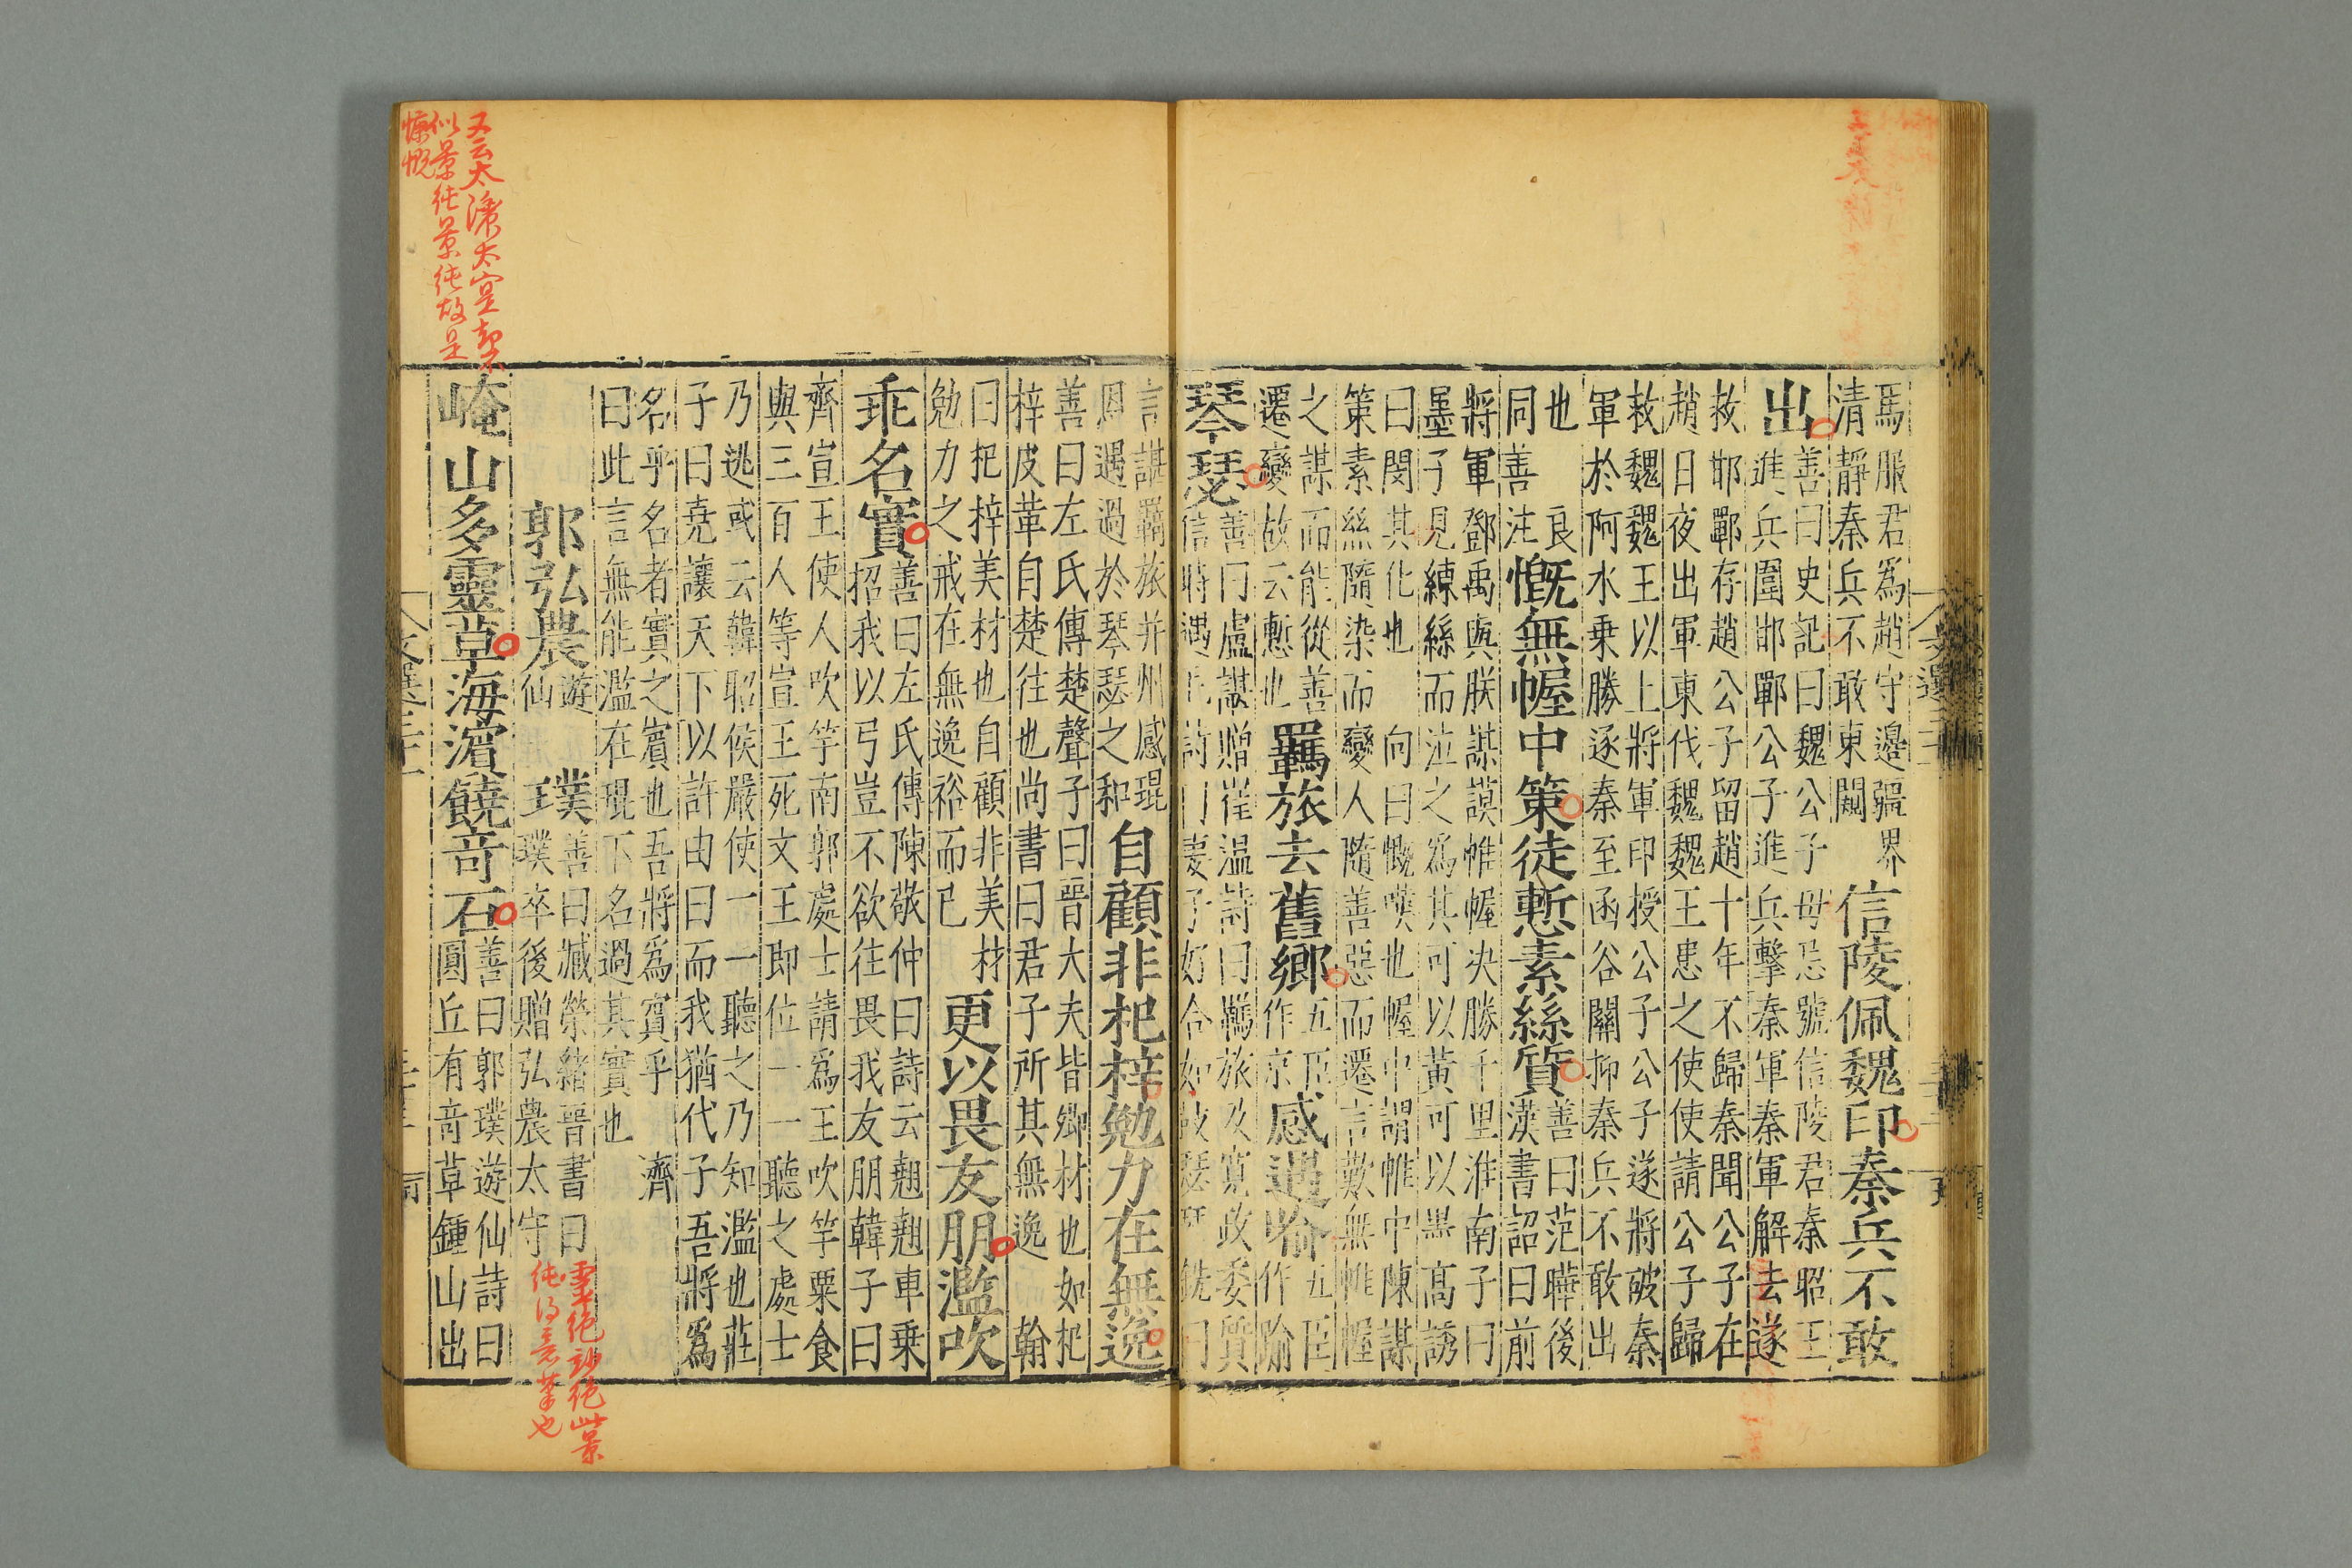 馬服君為趙守邊疆界
清靜秦兵不敢東闚
信陵佩魏印秦兵不敢
出
善曰史記曰魏公子毋忌號信陵君秦昭王
進兵圍邯鄲公子進兵擊秦軍秦軍解去遂
救邯鄲存趙公子留趙十年不歸秦聞公子在
趙日夜出軍東伐魏魏王患之使使請公子歸
救魏魏王以上將軍印授公子公子遂將破秦
軍於阿水乗勝逐秦至函谷關抑秦兵不敢出
也 良
同善注
慨無幄中策徒慙素絲質
善曰范曄後
漢書詔曰前
將軍鄧禹與朕謀謨帷幄決勝千里淮南子曰
墨子見練絲而泣之為其可以黃可以黑高誘
曰閔其化也 向曰慨嘆也幄中謂帷中陳謀
策素絲隨染而變人隨善惡而遷言歎無帷幄
之謀而能從善
遷變故云慙也
羈旅去舊鄉
五臣
作京
感遇喻
五臣
作踰
琴瑟
善曰盧諶贈崔溫詩曰羈旅及寬政委質
時遇 詩曰妻子好合如鼓瑟琴 銑曰
言諶羈旅并州感琨
恩遇過於琴瑟之和
自顧非杞梓勉力在無逸
善曰左氏傳楚聲子曰晉大夫皆卿材也如杞
梓皮革自楚往也尚書曰君子所其無逸 翰
曰杞梓美材也自顧非美材
勉力之戒在無逸裕而已
更以畏友朋濫吹
乖名實
善曰左氏傳陳敬仲曰詩云翹翹車乗
招我以弓豈不欲往畏我友朋韓子曰
齊宣王使人吹竽南郭處士請為王吹竽粟食
與三百人等宣王死文王即位一一聽之處士
乃逃或云韓昭侯嚴使一一聽之乃知濫也莊
子曰堯讓天下以許由曰而我猶代子吾將為
名乎名者實之賓也吾將為賓乎 濟
曰此言無能濫在琨下名過其實也
郭弘農
遊
仙
璞
善曰臧榮緒晉書曰
璞卒後贈弘農太守
靈絕玅絕此景
純得意筆也
崦山多靈草海濵饒奇石
善曰郭璞遊仙詩曰
圓丘有奇草鍾山出
又云太濃太實却不
似景純景純故是
慷慨